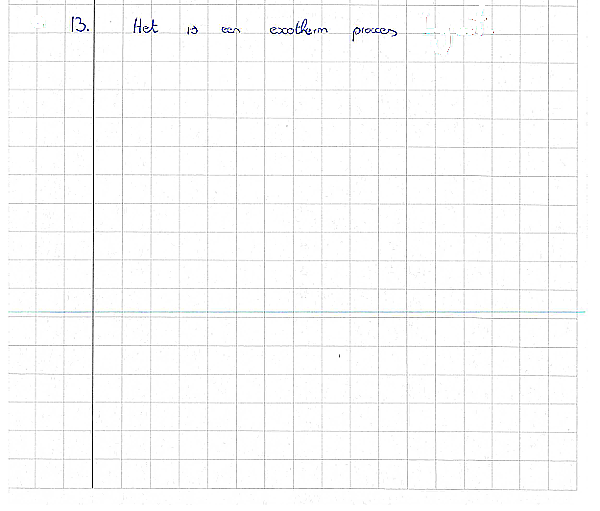 13. Het is een exotherm proces